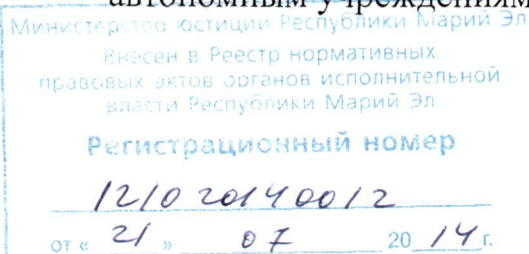 автономным учреждениям
Министерство юстиции Республики Марий Эл
Внесен в Реестр нормативных
правовых актов органов исполнительной
власти Республики Марий Эл
Регистрационный номер
121020140012
от « 21 » 07 20 14 г.